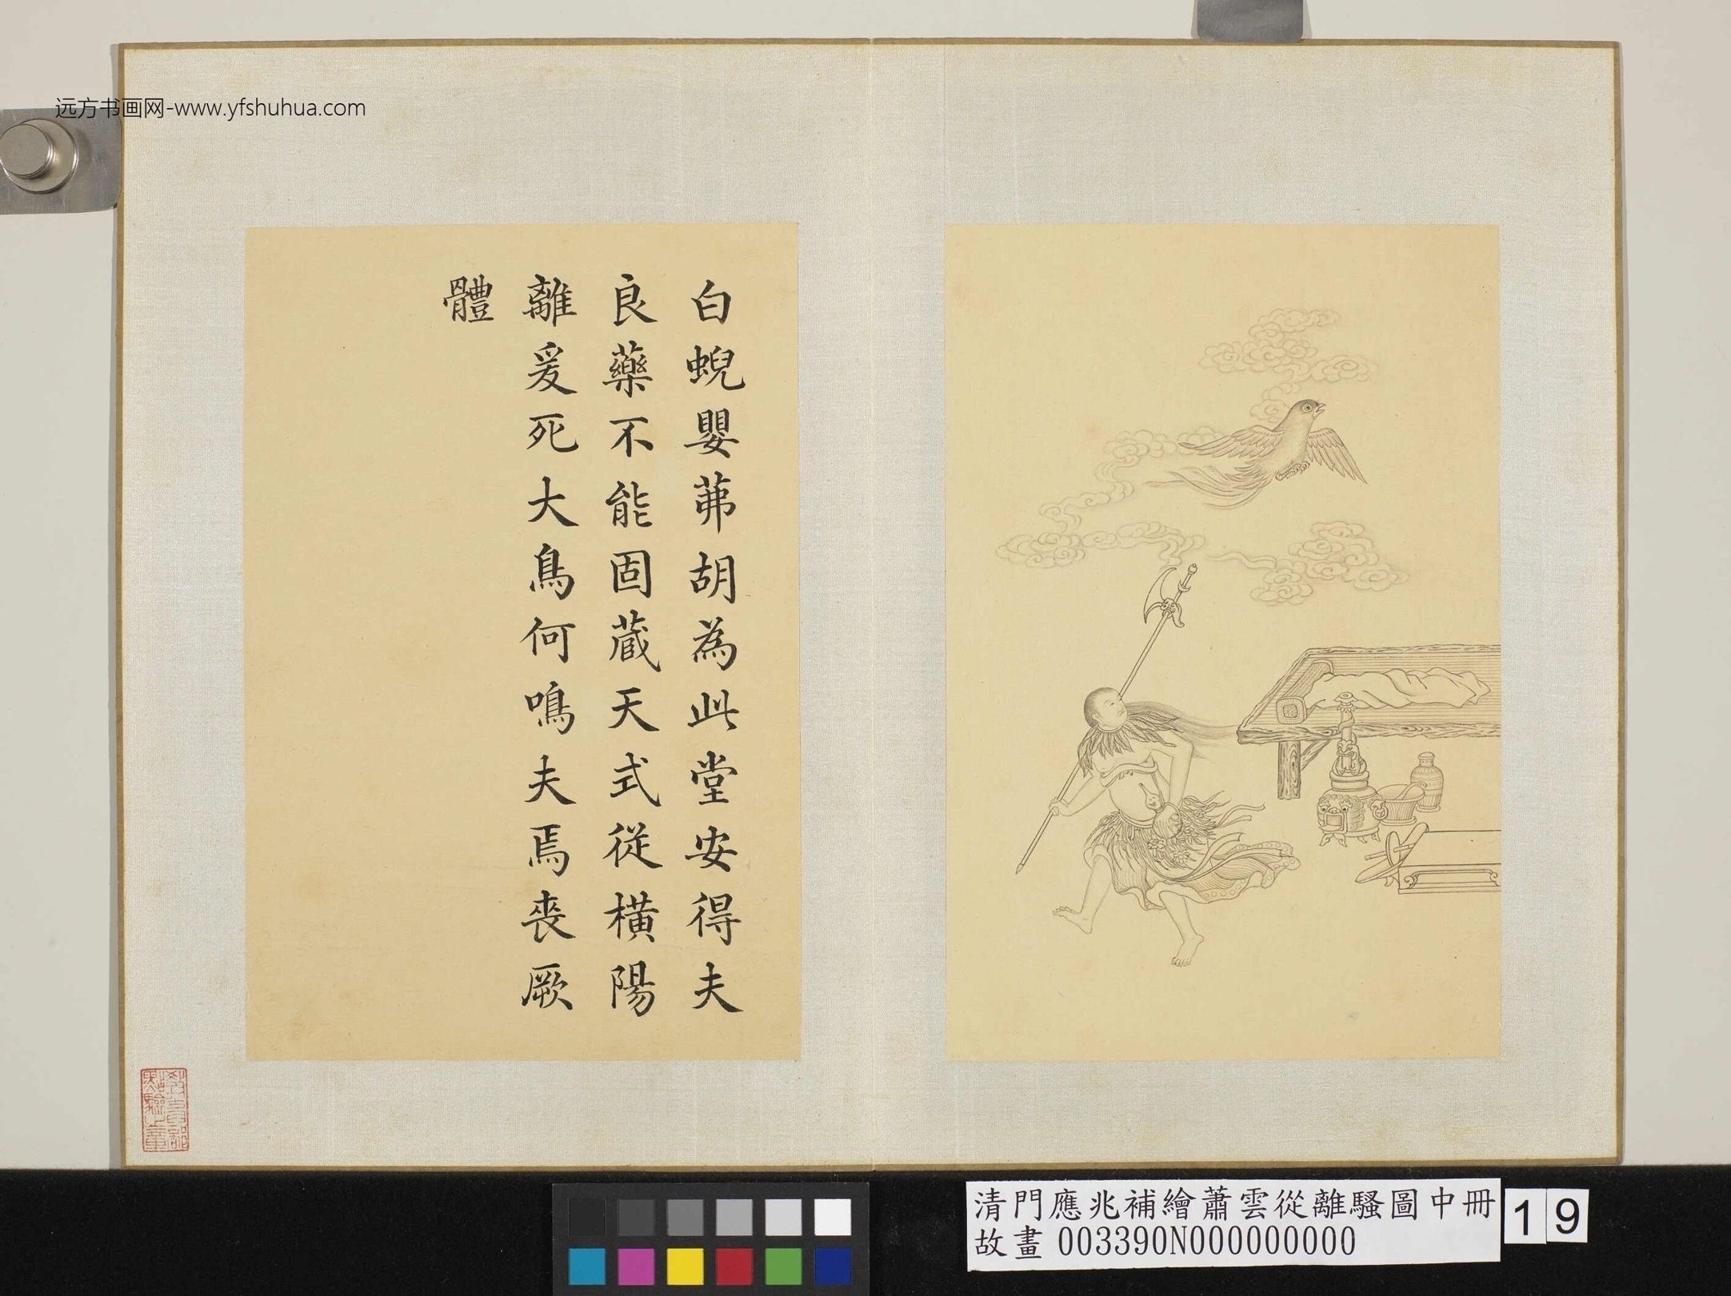 远方书画网-www.yfshuhua.com
白蜺嬰茀胡為此堂安得夫
良藥不能固藏天式從橫陽
離爰死大鳥何鳴夫焉喪厥
體
教育部點驗之章
清門應兆補繪蕭雲從離騷圖中冊
故畫 003390N000000000
19